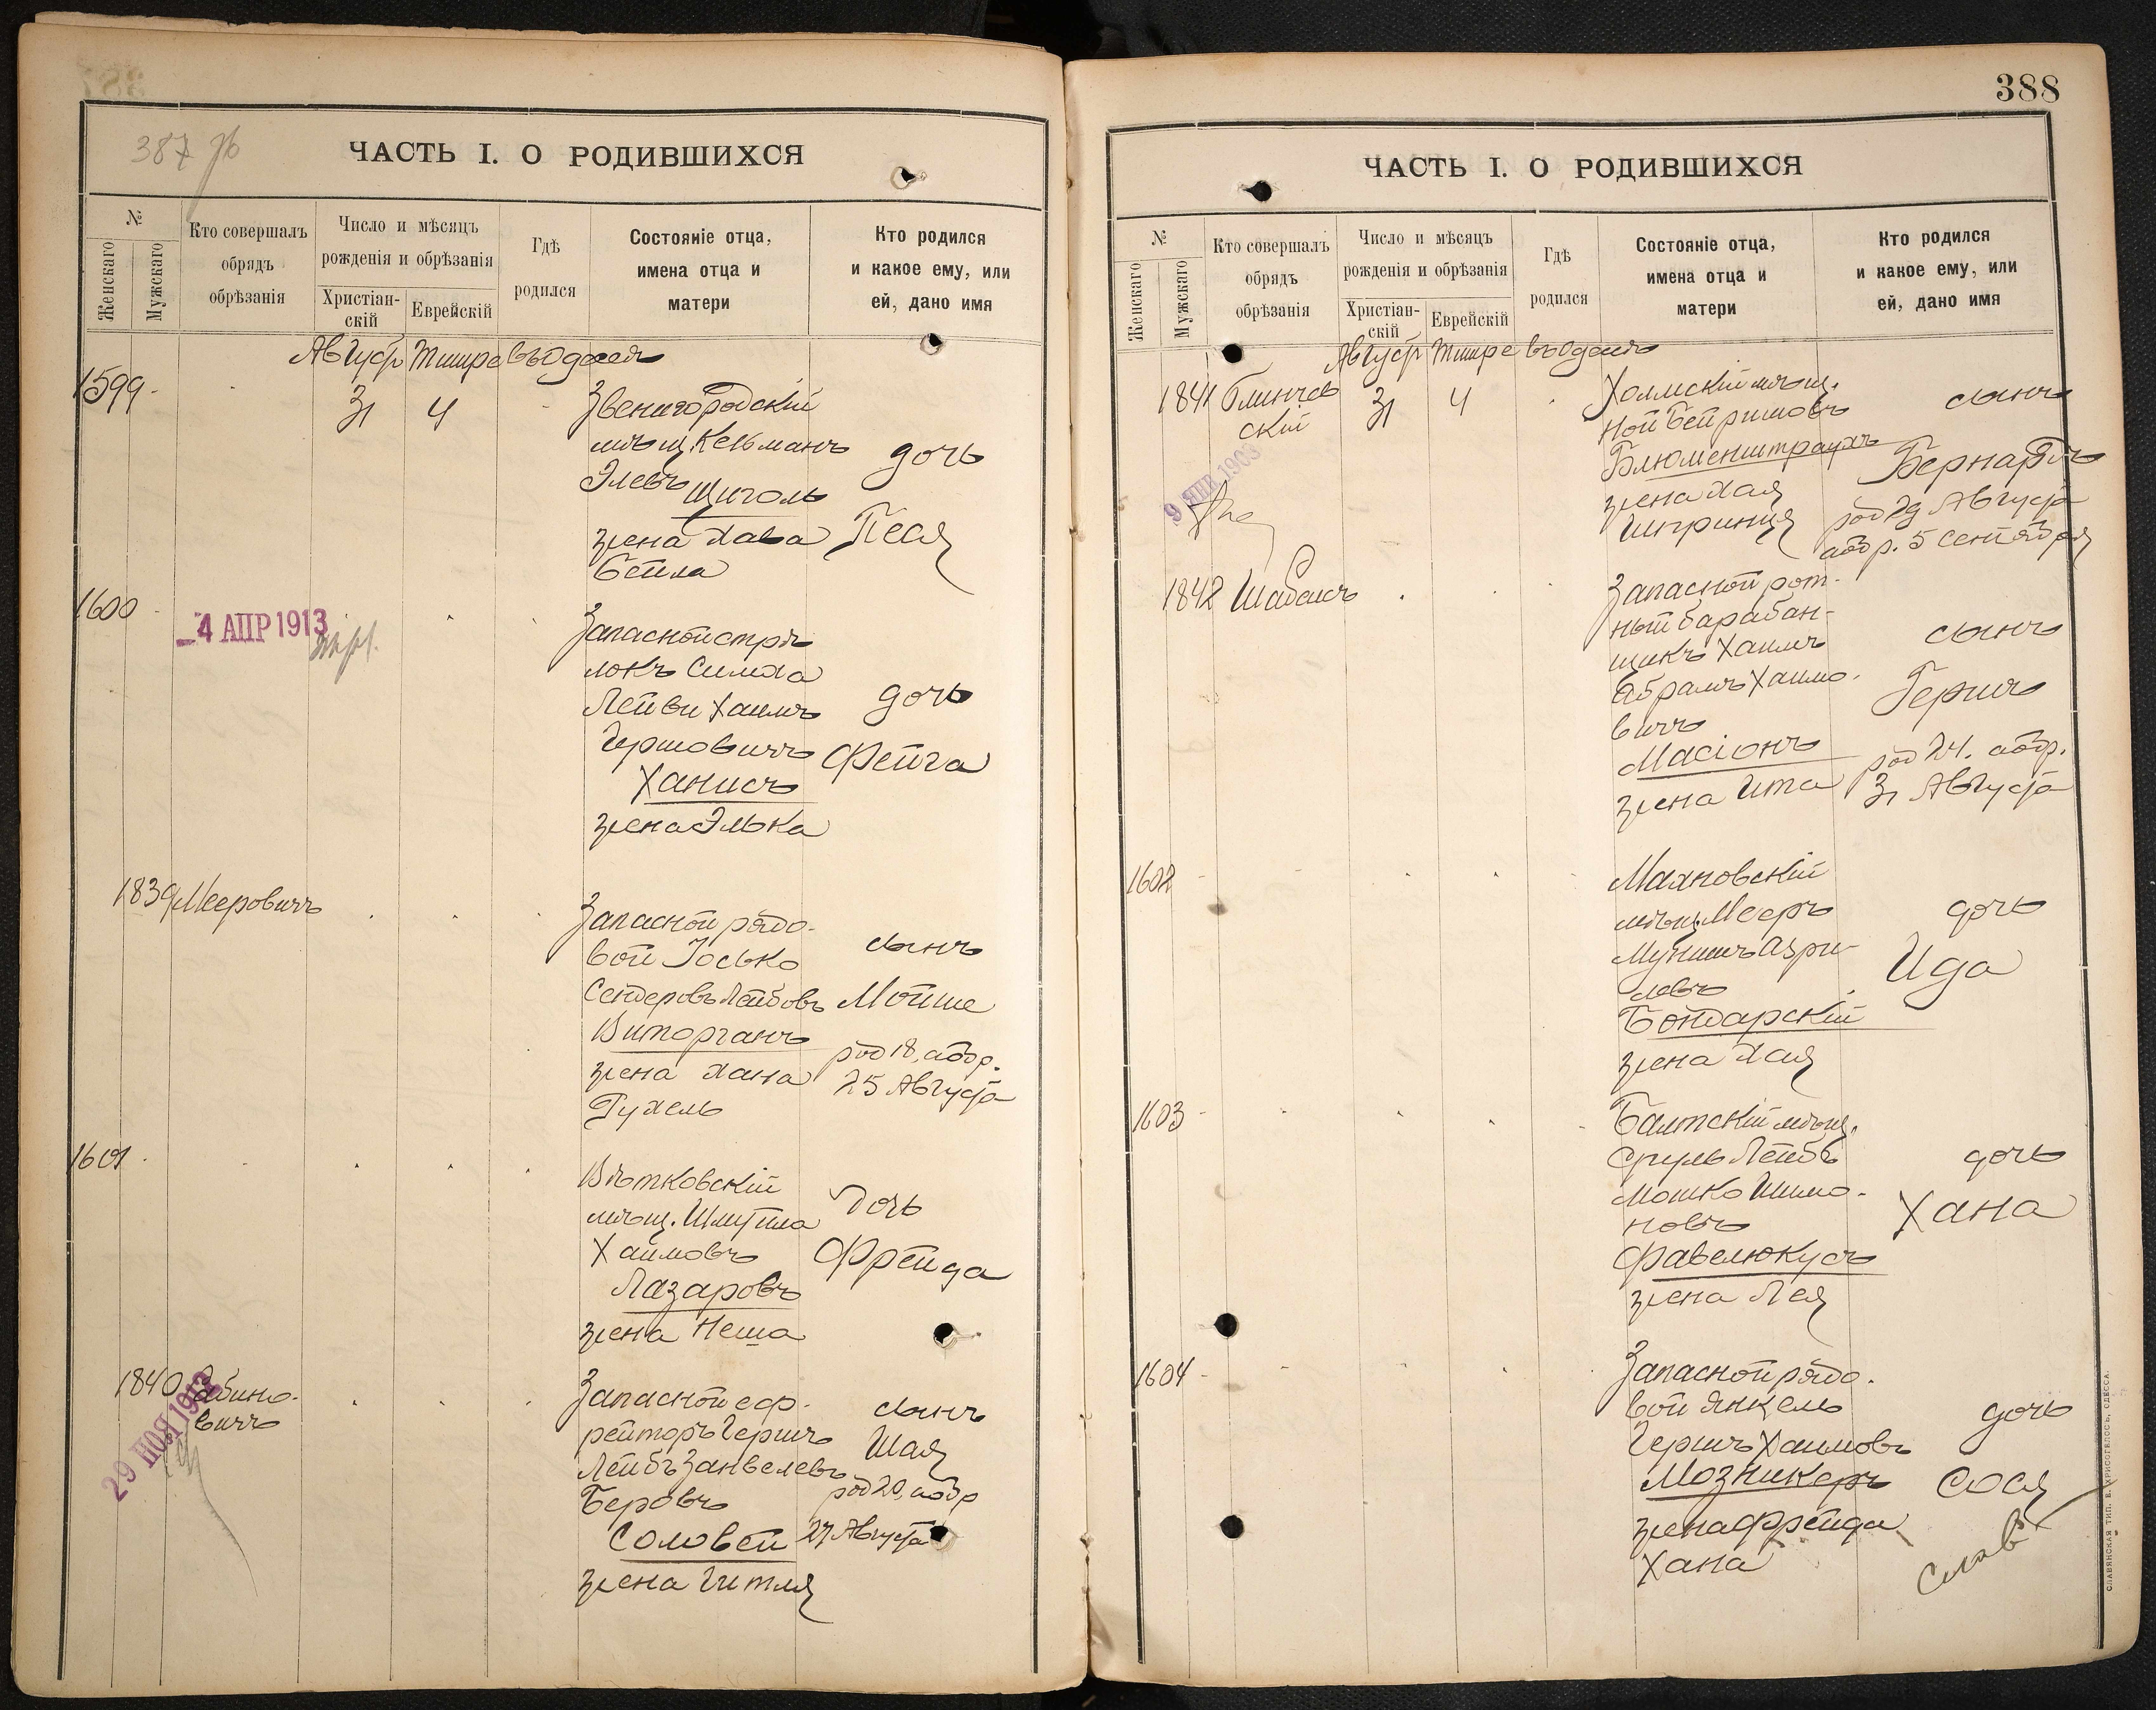 387 об
ЧАСТЬ I. О РОДИВШИХСЯ
№
Женскаго
Мужскаго
Кто совершалъ
обрядъ
обрѣзанія
Число и мѣсяцъ
рожденія и обрѣзанія
Христіан-
скій
Еврейскій
Гдѣ
родился
Состояніе отца,
имена отца и
матери
Кто родился
и какое ему, или
ей, дано имя
Августъ Тишре въ Одессѣ
1599
31 4
Звенигородскій
мѣщ. Кельманъ
Элевъ Щиголь
жена Хава
Бейла
дочь
Песя
1600
4 АПР 1913
Запасной стрѣ
локъ Симха
Лейви Хаимъ
Гершовичъ
Ханисъ
жена Элька
дочь
Фейга
1839 Мееровичъ
Запасной рядо-
вой Іосько
Сендеровъ Лейбовъ
Виторганъ
жена Хана
Рухель
сынъ
Мойше
род 18, обр.
25 Августа
1601
Вѣтковскій
мѣщ. Шмуйла
Хаимовъ
Лазаровъ
жена Неша
дочь
Фрейда
1840 Рабино-
вичъ
29 НОЯ 1912
Запасной еф-
рейторъ Гершъ
Лейбъ Занвелевъ
Беровъ
Соловей
жена Гитля
сынъ
Шая
род 20, обр
27 Августа
388
ЧАСТЬ I. О РОДИВШИХСЯ
№
Женскаго
Мужскаго
Кто совершалъ
обрядъ
обрѣзанія
Число и мѣсяцъ
рожденія и обрѣзанія
Христіан-
скій
Еврейскій
Гдѣ
родился
Состояніе отца,
имена отца и
матери
Кто родился
и какое ему, или
ей, дано имя
Августъ Тишре въ Одессѣ
1841 Блинчев
скій
9 ЯНВ 1903
31 4
Холмскій мѣщ.
Ной Бейришовъ
Блюменштраухъ
жена Хая
Шпринця
сынъ
Бернардъ
род 29 Августа
обр. 5 Сентября
1842 Шабасъ
Запасной рот-
ный барабан-
щикъ Хаимъ
Абрамъ Хаимо-
вичъ
Масіонъ
жена Ита
сынъ
Гершъ
род 24. обр.
31 Августа
1602
Махновскій
мѣщ. Мееръ
Мунишъ Азри-
левъ
Бондарскій
жена Хая
дочь
Ида
1603
Балтскій мѣщ.
Сруль Лейбъ
Мошко Шимо-
новъ
Фавелюкусъ
жена Лея
дочь
Хана
1604
Запасной рядо-
вой Янкель
Гершъ Хаимовъ
Мозникеръ
жена Фрейда
Хана
дочь
Сося
СЛАВЯНСКАЯ ТИП. Е. ХРИСОГЕЛОСЪ, ОДЕССА.